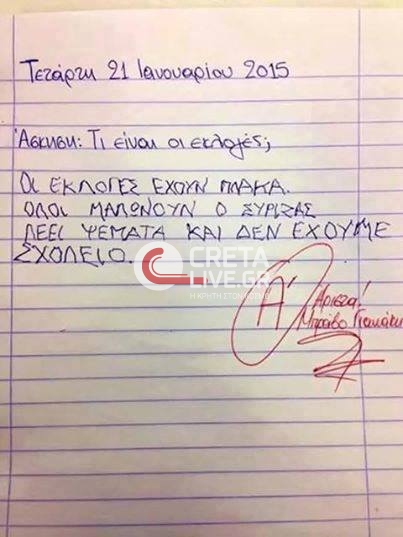 Τετάρτη 21 Ιανουαρίου 2015
Άσκηση: Τι είναι οι εκλογές;
ΟΙ ΕΚΛΟΓΕΣ ΕΧΟΥΝ ΠΛΑΚΑ.
ΟΛΟΙ ΜΑΛΩΝΟΥΝ Ο ΣΥΡΙΖΑΣ
ΛΕΕΙ ΨΕΜΑΤΑ ΚΑΙ ΔΕΝ ΕΧΟΥΜΕ
ΣΧΟΛΕΙΟ.
CRETA
LIVE.GR
Α'
Άριστα!
Μπράβο Γιαννάκη